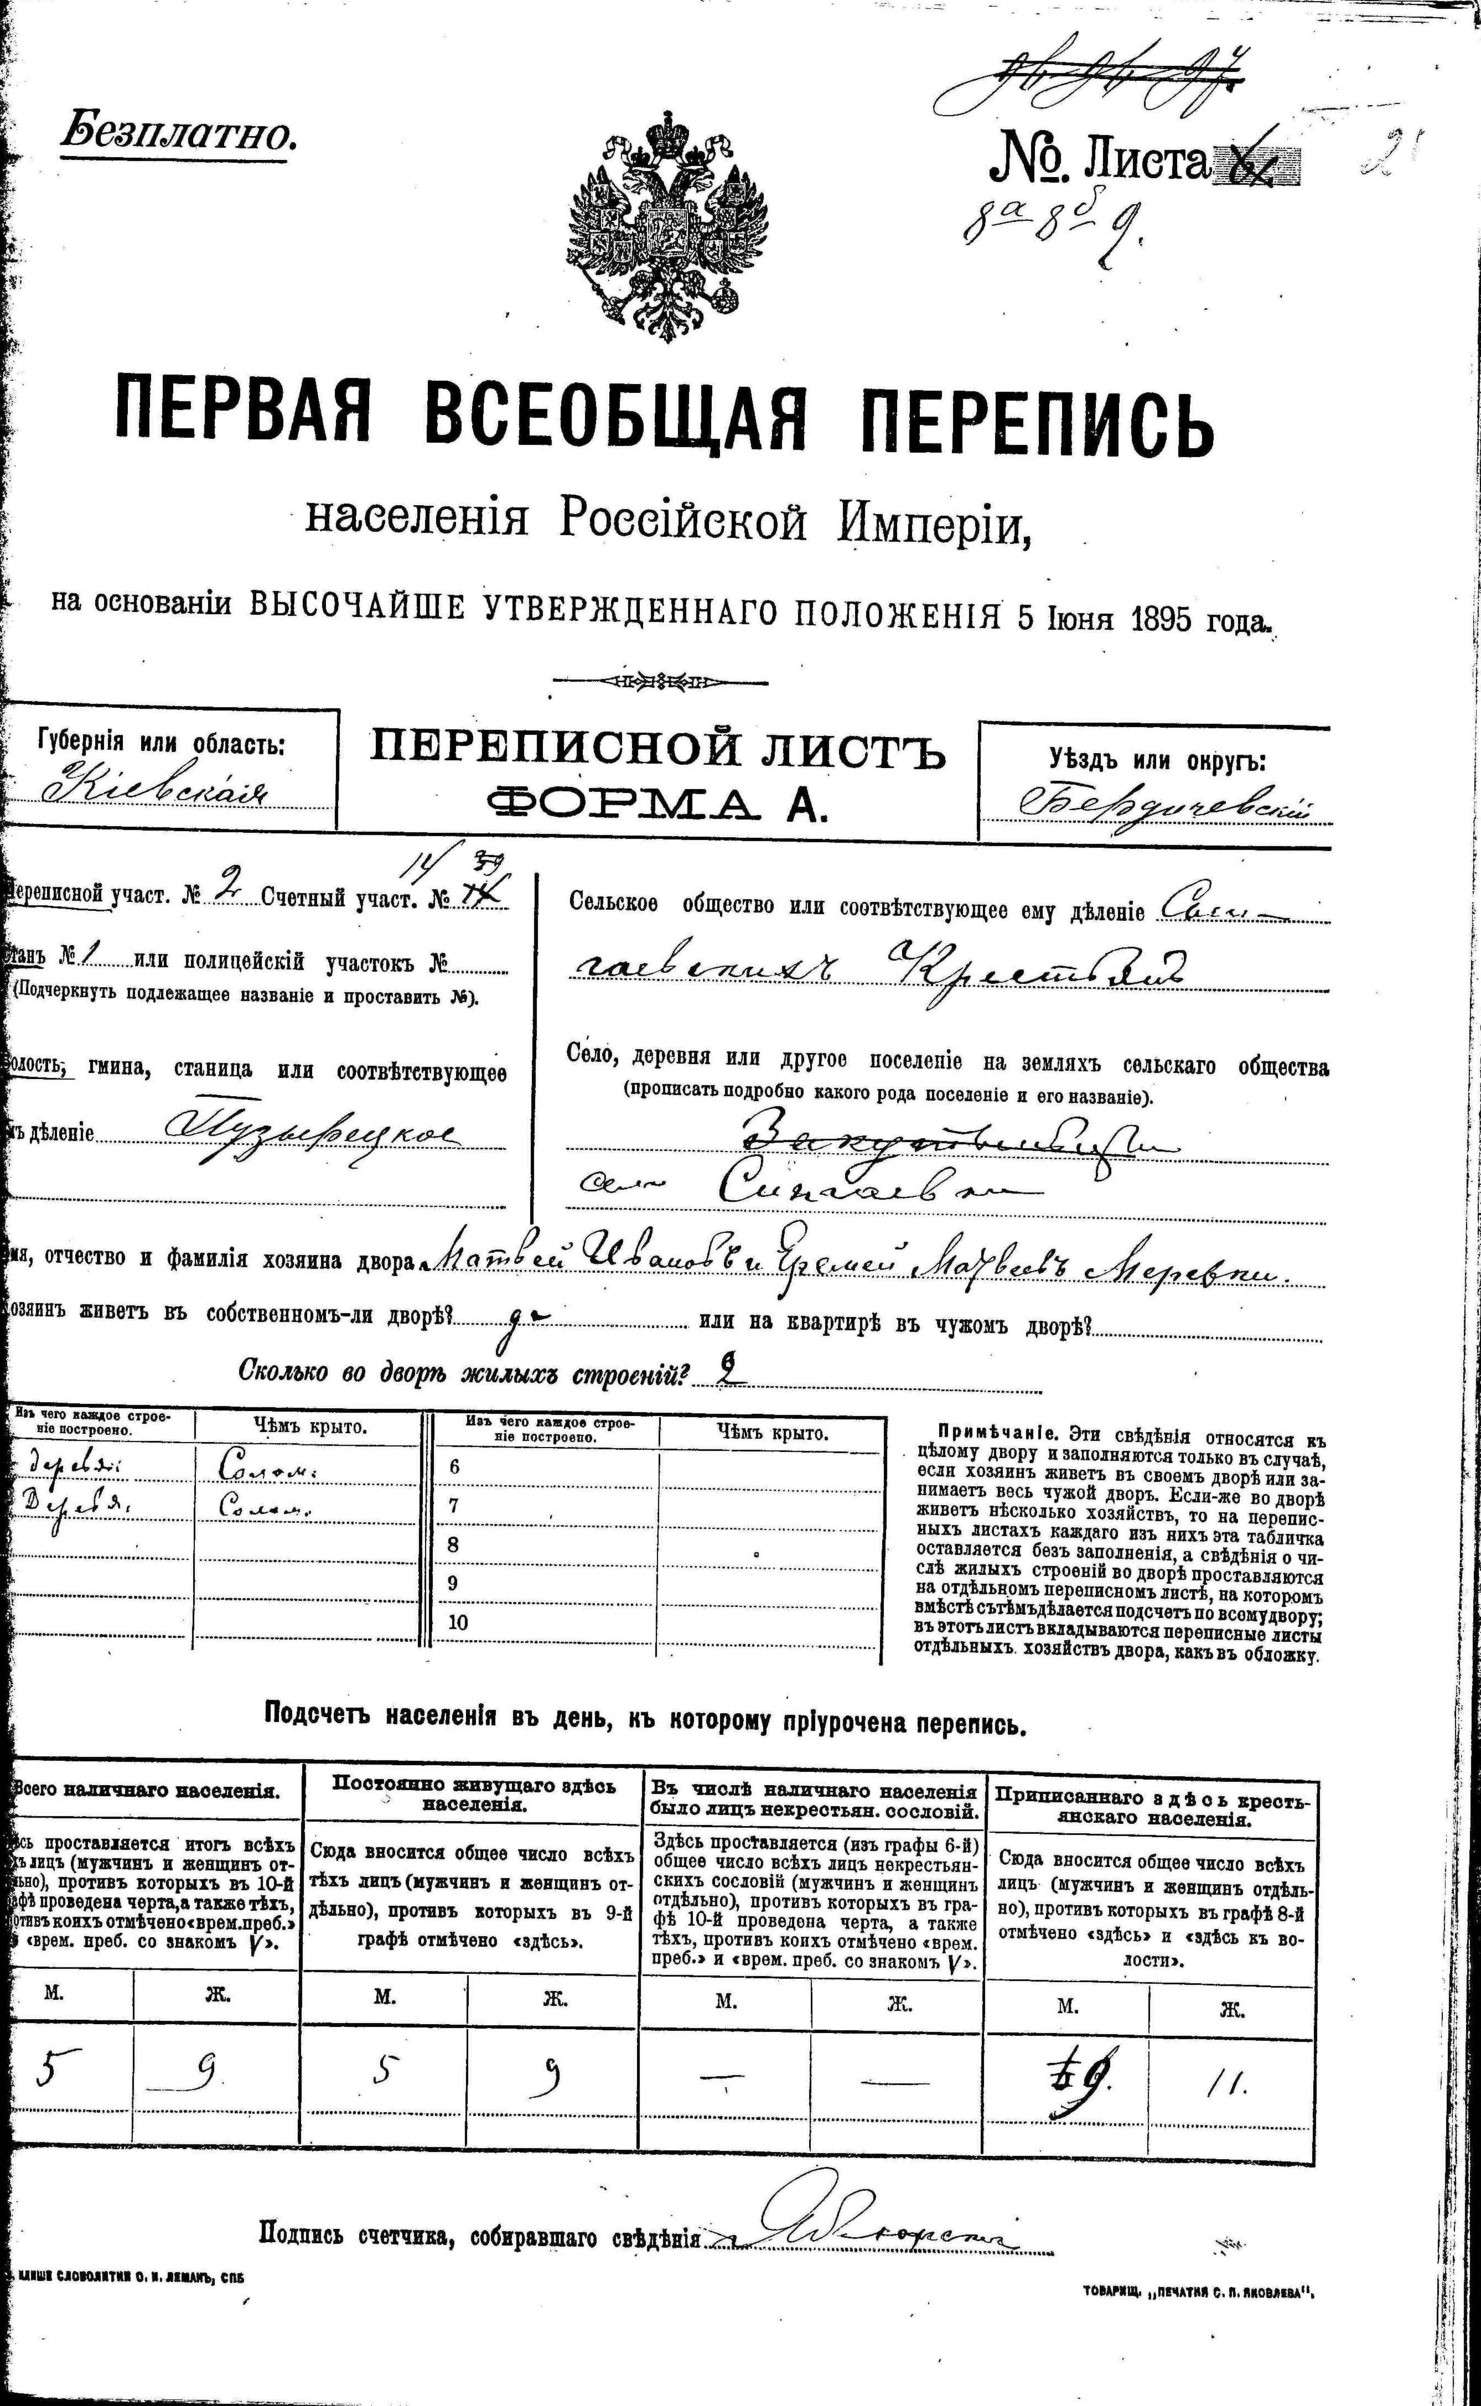 Безплатно.
№. Листа
8а 8б 9.
ПЕРВАЯ ВСЕОБЩАЯ ПЕРЕПИСЬ
населенія Россійской Имперіи,
на основаніи ВЫСОЧАЙШЕ УТВЕРЖДЕННАГО ПОЛОЖЕНІЯ 5 Іюня 1895 года.
Губернія или область:
Кіевская
ПЕРЕПИСНОЙ ЛИСТЪ
ФОРМА А.
Уѣздъ или округъ:
Бердичевскій
14 39
Переписной участ. № 2 Счетный участ. №
Станъ № 1 или полицейскій участокъ №
(Подчеркнуть подлежащее названіе и проставить №).
Волость, гмина, станица или соотвѣтствующее
дѣленіе Пузырецкое
Сельское общество или соотвѣтствующее ему дѣленіе
гаевскихъ Крестьянъ
Село, деревня или другое поселеніе на земляхъ сельскаго общества
(прописать подробно какого рода поселеніе и его названіе).
село Сингаевка
Имя, отчество и фамилія хозяина двора Матвей Ивановъ и Еремей Матвеевъ Меревки.
Хозяинъ живетъ въ собственномъ-ли дворѣ? да или на квартирѣ въ чужомъ дворѣ?
Сколько во дворѣ жилыхъ строеній? 2
Изъ чего каждое строе-
ніе построено.
Чѣмъ крыто.
Изъ чего каждое строе-
ніе построено.
Чѣмъ крыто.
деревян: Солом: 6
Деревя. Солом. 7
8
9
10
Примѣчаніе. Эти свѣдѣнія относятся къ
цѣлому двору и заполняются только въ случаѣ,
если хозяинъ живетъ въ своемъ дворѣ или за-
нимаетъ весь чужой дворъ. Если-же во дворѣ
живетъ нѣсколько хозяйствъ, то на перепис-
ныхъ листахъ каждаго изъ нихъ эта табличка
оставляется безъ заполненія, а свѣдѣнія о чи-
слѣ жилыхъ строеній во дворѣ проставляются
на отдѣльномъ переписномъ листѣ, на которомъ
вмѣстѣ съ тѣмъ дѣлается подсчетъ по всему двору;
въ этотъ листъ вкладываются переписные листы
отдѣльныхъ хозяйствъ двора, какъ въ обложку.
Подсчетъ населенія въ день, къ которому пріурочена перепись.
Всего наличнаго населенія.
Здѣсь проставляется итогъ всѣхъ
лицъ (мужчинъ и женщинъ от-
дѣльно), противъ которыхъ въ 10-й
графѣ проведена черта, а также тѣхъ,
противъ коихъ отмѣчено «врем. преб.»
и «врем. преб. со знакомъ V».
Постоянно живущаго здѣсь
населенія.
Сюда вносится общее число всѣхъ
тѣхъ лицъ (мужчинъ и женщинъ от-
дѣльно), противъ которыхъ въ 9-й
графѣ отмѣчено «здѣсь».
Въ числѣ наличнаго населенія
было лицъ некрестьян. сословій.
Здѣсь проставляется (изъ графы 6-й)
общее число всѣхъ лицъ некрестьян-
скихъ сословій (мужчинъ и женщинъ
отдѣльно), противъ которыхъ въ гра-
фѣ 10-й проведена черта, а также
тѣхъ, противъ коихъ отмѣчено «врем.
преб.» и «врем. преб. со знакомъ V».
Приписаннаго здѣсь кресть-
янскаго населенія.
Сюда вносится общее число всѣхъ
лицъ (мужчинъ и женщинъ отдѣль-
но), противъ которыхъ въ графѣ 8-й
отмѣчено «здѣсь» и «здѣсь къ во-
лости».
М. Ж. М. Ж. М. Ж. М. Ж.
5 9 5 9 — — 9. 11.
Подпись счетчика, собиравшаго свѣдѣнія
СЛОВОЛИТНИ О. И. ЛЕМАНЪ, СПБ
ТОВАРИЩ. „ПЕЧАТНЯ С. П. ЯКОВЛЕВА".